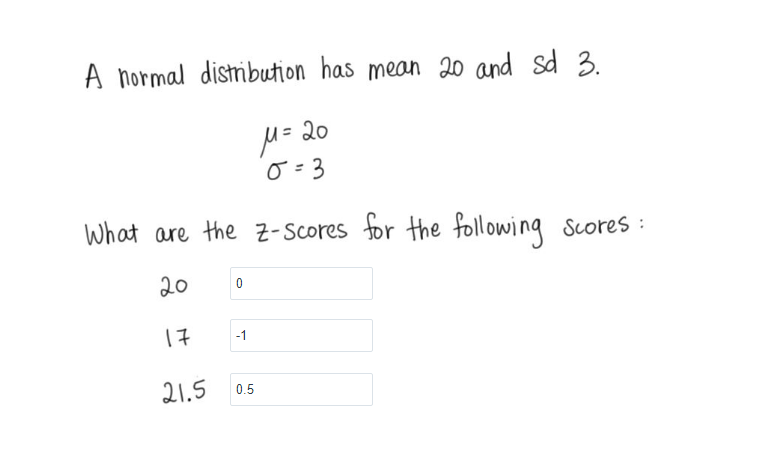 A normal distribution has mean 20 and sd 3.
μ = 20
σ = 3
What are the z-scores for the following scores :
20 0
17 -1
21.5 0.5